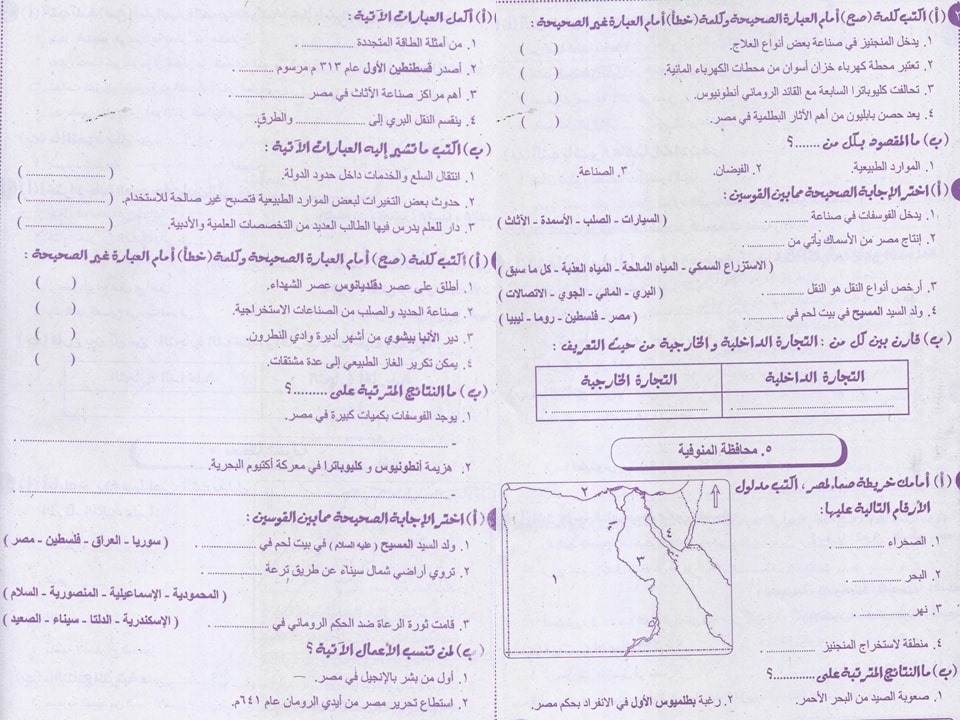 ٣ (أ) اكتب كلمة (صح) أمام العبارة الصحيحة وكلمة (خطأ) أمام العبارة غير الصحيحة :
١. يدخل المنجنيز في صناعة بعض أنواع العلاج. ( )
٢. تعتبر محطة كهرباء خزان أسوان من محطات الكهرباء المائية. ( )
٣. تحالفت كليوباترا السابعة مع القائد الروماني أنطونيوس. ( )
٤. يعد حصن بابليون من أهم الآثار البطلمية في مصر. ( )
(ب) ما المقصود بكل من .......؟
١. الموارد الطبيعية ٢. الفيضان. ٣. الصناعة.
(أ) اختر الإجابة الصحيحة مما بين القوسين :
١. يدخل الفوسفات في صناعة ............ ( السيارات - الصلب - الأسمدة - الأثاث )
٢. إنتاج مصر من الأسماك يأتي من ............
( الاستزراع السمكي - المياه المالحة - المياه العذبة - كل ما سبق )
٣. أرخص أنواع النقل هو النقل ............ ( البري - المائي - الجوي - الاتصالات )
٤. ولد السيد المسيح في بيت لحم في ............ ( مصر - فلسطين - روما - ليبيا )
(ب) قارن بين كل من : التجارة الداخلية و الخارجية من حيث التعريف :
التجارة الداخلية التجارة الخارجية
............ ............
٥. محافظة المنوفية
(أ) أمامك خريطة صماء لمصر، اكتب مدلول
الأرقام التالية عليها :
١. الصحراء ............
٢. البحر ............
٣. نهر ............
٤. منطقة لاستخراج المنجنيز ............
٢
٤
٣
١
(ب) ما النتائج المترتبة على ............؟
١. صعوبة الصيد من البحر الأحمر. ٢. رغبة بطلميوس الأول في الانفراد بحكم مصر.
(أ) أكمل العبارات الآتية :
١. من أمثلة الطاقة المتجددة ............ .
٢. أصدر قسطنطين الأول عام ٣١٣ م مرسوم ............ .
٣. أهم مراكز صناعة الأثاث في مصر ............ .
٤. ينقسم النقل البري إلى ............ والطرق.
(ب) اكتب ما تشير إليه العبارات الآتية :
١. انتقال السلع والخدمات داخل حدود الدولة. ( ............ )
٢. حدوث بعض التغيرات لبعض الموارد الطبيعية فتصبح غير صالحة للاستخدام. ( ............ )
٣. دار للعلم يدرس فيها الطالب العديد من التخصصات العلمية والأدبية. ( ............ )
(أ) اكتب كلمة (صح) أمام العبارة الصحيحة وكلمة (خطأ) أمام العبارة غير الصحيحة :
١. أطلق على عصر دقلديانوس عصر الشهداء. ( )
٢. صناعة الحديد والصلب من الصناعات الاستخراجية. ( )
٣. دير الأنبا بيشوي من أشهر أديرة وادي النطرون. ( )
٤. يمكن تكرير الغاز الطبيعي إلى عدة مشتقات. ( )
(ب) ما النتائج المترتبة على .........؟
١. يوجد الفوسفات بكميات كبيرة في مصر.
- ............
٢. هزيمة أنطونيوس و كليوباترا في معركة أكتيوم البحرية.
- ............
(أ) اختر الإجابة الصحيحة مما بين القوسين :
١. ولد السيد المسيح (عليه السلام) في بيت لحم في ............ . ( سوريا - العراق - فلسطين - مصر )
٢. تروي أراضي شمال سيناء عن طريق ترعة ............ .
( المحمودية - الإسماعيلية - المنصورية - السلام )
٣. قامت ثورة الرعاة ضد الحكم الروماني في ............ . ( الإسكندرية - الدلتا - سيناء - الصعيد )
(ب) لمن تنسب الأعمال الآتية ؟
١. أول من بشر بالإنجيل في مصر.
٢. استطاع تحرير مصر من أيدي الرومان عام ٦٤١م.